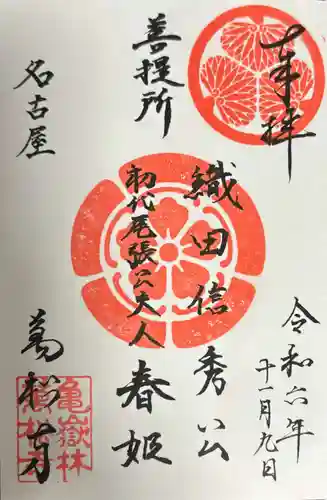 奉拝
令和六年
十一月九日
織田信秀公
菩提所
初代尾張公夫人
春姫
名古屋
萬松寺
亀嶽林
萬松寺